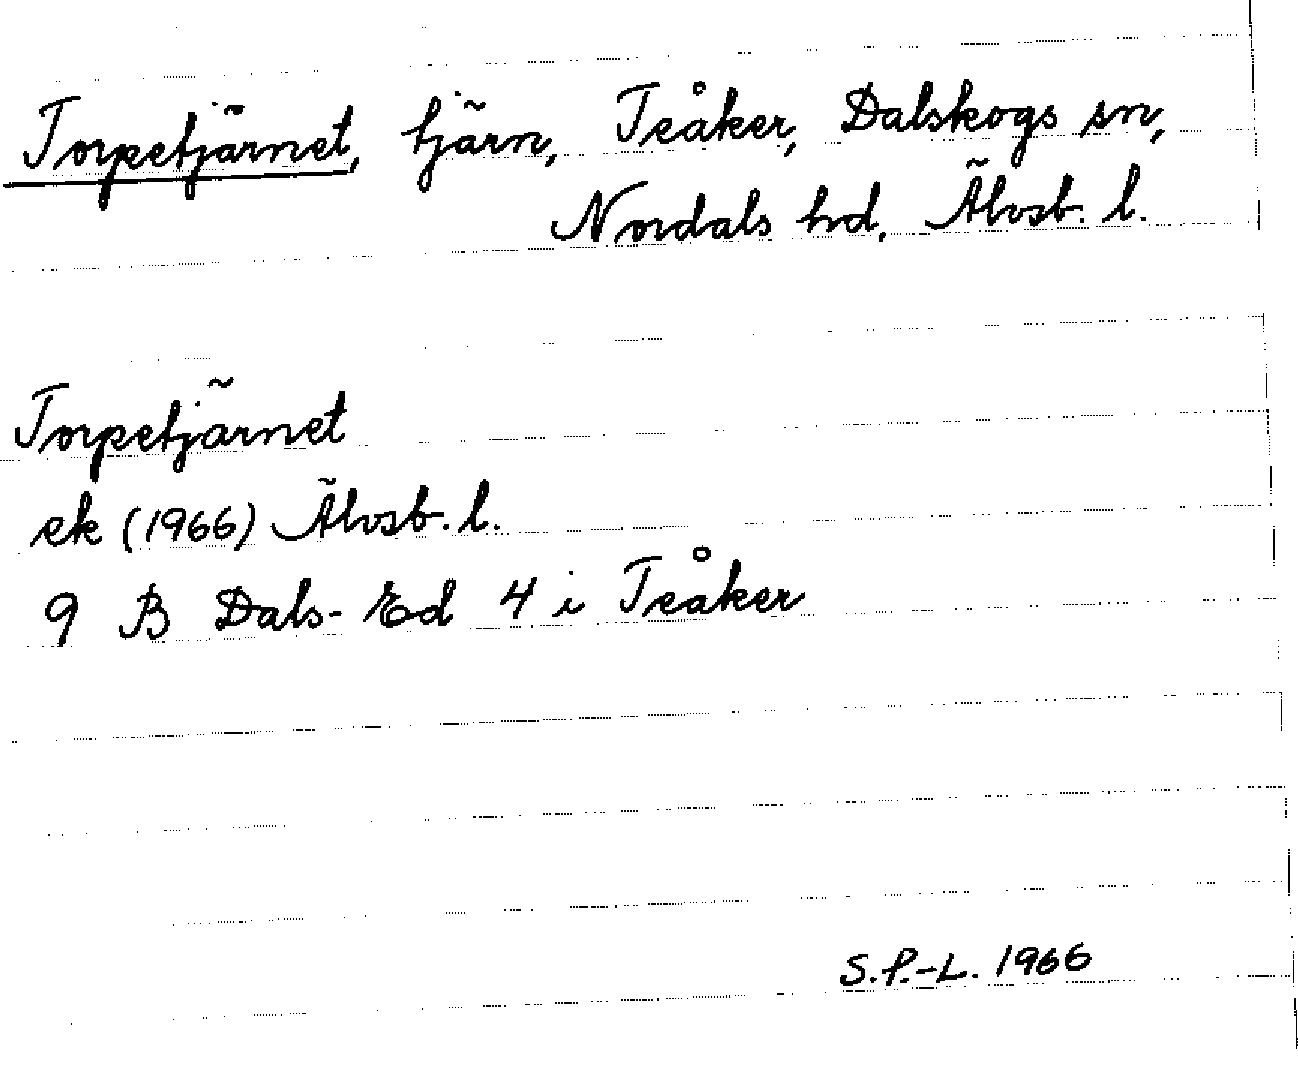 Torpetjärnet, tjärn, Teåker, Dalskogs sn,
Nordals hd, Älvsb. l.
Torpetjärnet
ek (1966) Älvsb. l.
9 B Dals-Ed 4 i Teåker
S.P.-L. 1966